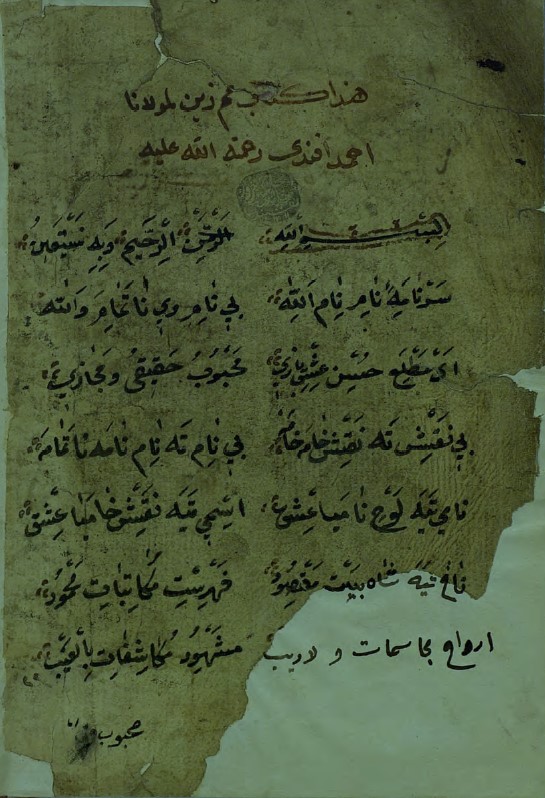 هذا كتاب مم زين لمولانا
احمد افندى رحمة الله عليه
بِسْــمِ اللهِ الرَّحْمٰنِ الرَّحٖيمِ وَبِهٖ نَسْتَعٖينُ
سَرْنَامَهِٔ نَامِ نَامِ اَللهْ بٖى نَامِ وى نَاتَمَامِ وَاللهْ
اَىْ مَطْلَعِ حُسْنِ عِشْقِ بَازِى مَحْبُوبُ حَقٖيقٖى وَمَجَازِى
بِى نَقْشِ تَه نَقْشِ خَامَه خَامَه بِى نَامِ تَه نَامِ نَامَه نَاتَمَامَه
نامى تَيَه لَوْحِ نامَيا عِشْق اِسْمِى تَيَه نَقْشِ خَامَيَا عِشْق
نَاڤِ تَيَه شاه بَيْتِ مَقْصُودْ فَهْرِسْتِ مُكَاتِبَاتِ مَحْمُودْ
ارواح مجاسمات و لاريب مَشْهُودُ مُكَاشِفَاتِ بِالْغَيْبْ
محبوب